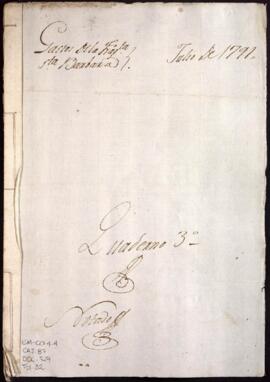 Gastos de la Frag.ta
Sta Barbara Julio de 1791.
Quaderno 3º
Notado
CM-CO4-4
CAJ. 87
DOC. 529